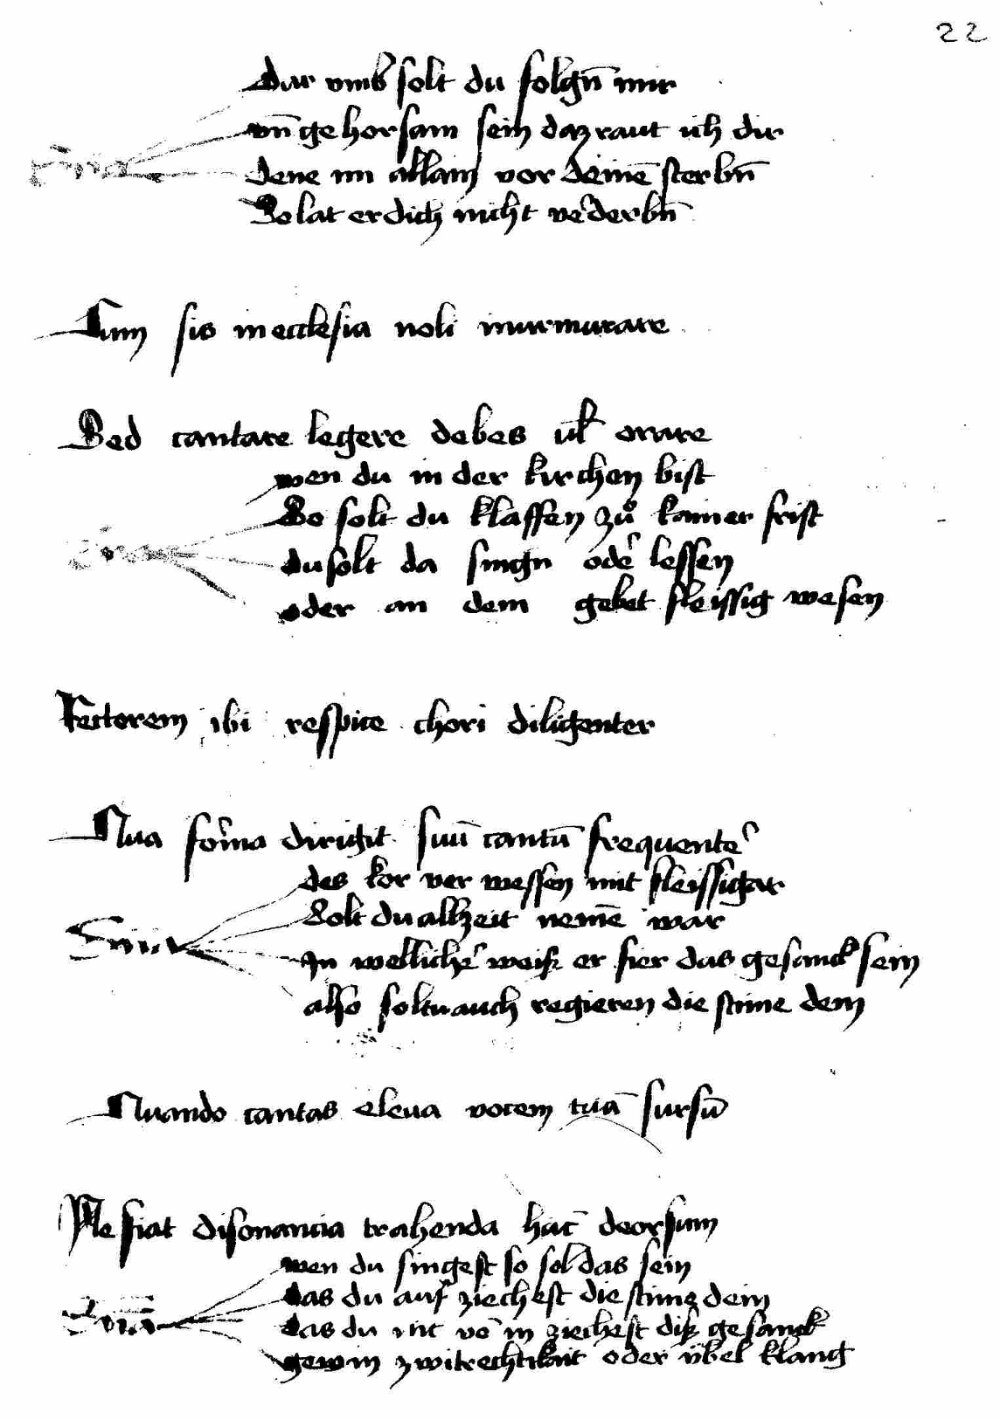 22
Dar vmb solt du folgn̄ mir
vn̄ gehorsam sein daz raut ich dir
dene im allain vor deinē sterbn̄
So lat er dich nicht v̓derbn̄
Cum sis in ecclesia noli murmurare
Sed cantare legere debes vl̄ orare
wen du in der kirchen bist
So solt du klaffen zů kainer frist
du solt da singn od̓ lessen
oder an dem gebet fleissig wesen
Rectorem ibi respice chori diligenter
Qua forma dirigit suū cantū frequent̓
des kor ver wessen mit fleissigar
Solt du allzeit nemē war
In wellich̓ weiß er fier das gesanck sein
also soltu auch regieren die stime dein
Quando cantas eleua vocem tuā sursū
Ne fiat disonancia trahenda hāc deorsum
wen du singest so sol das sein
das du auf ziechest die stime dein
das du nit vō in ziechest diß gesanck
gewin zwitrechtikait oder übel klang